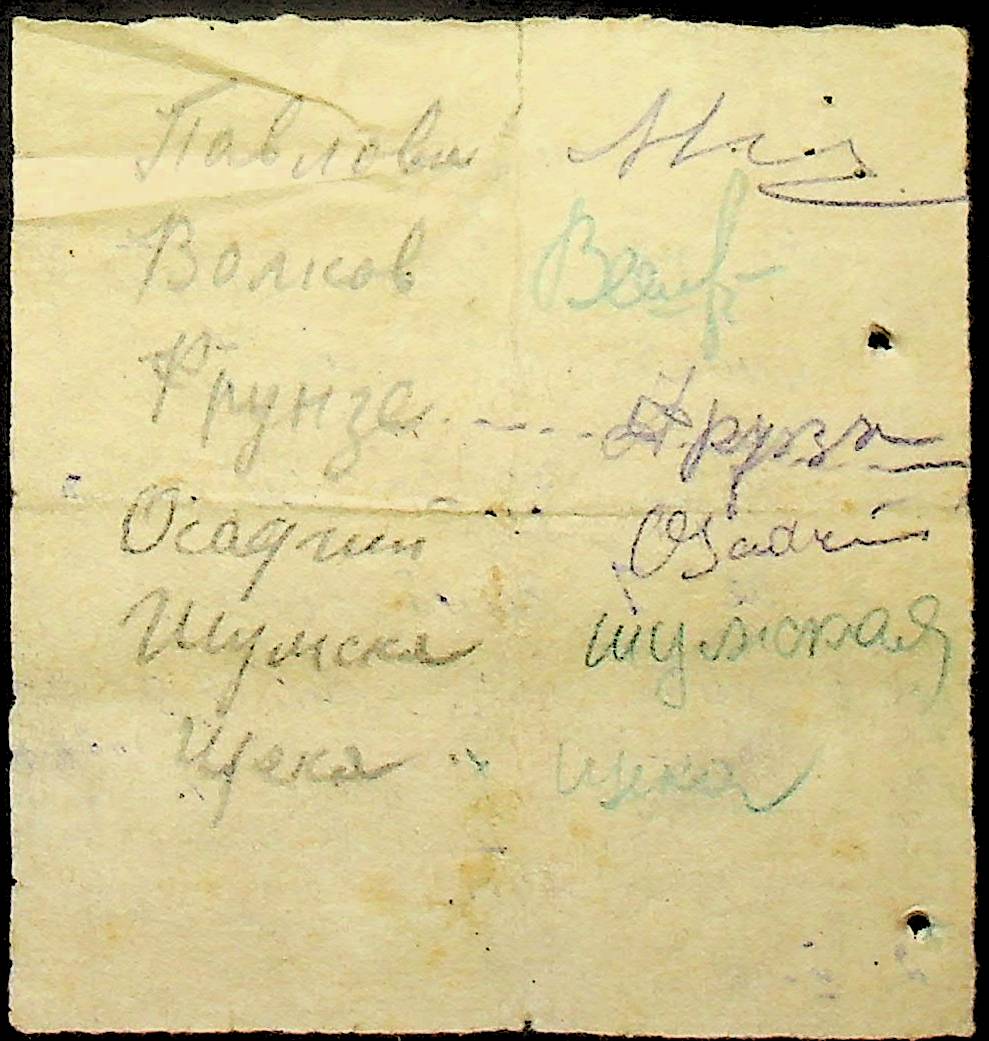 Павлова
Волков
Фрунзе - - - - Фрузе
Осадчий Осадчий
Шумска Шумская
Щека Щека